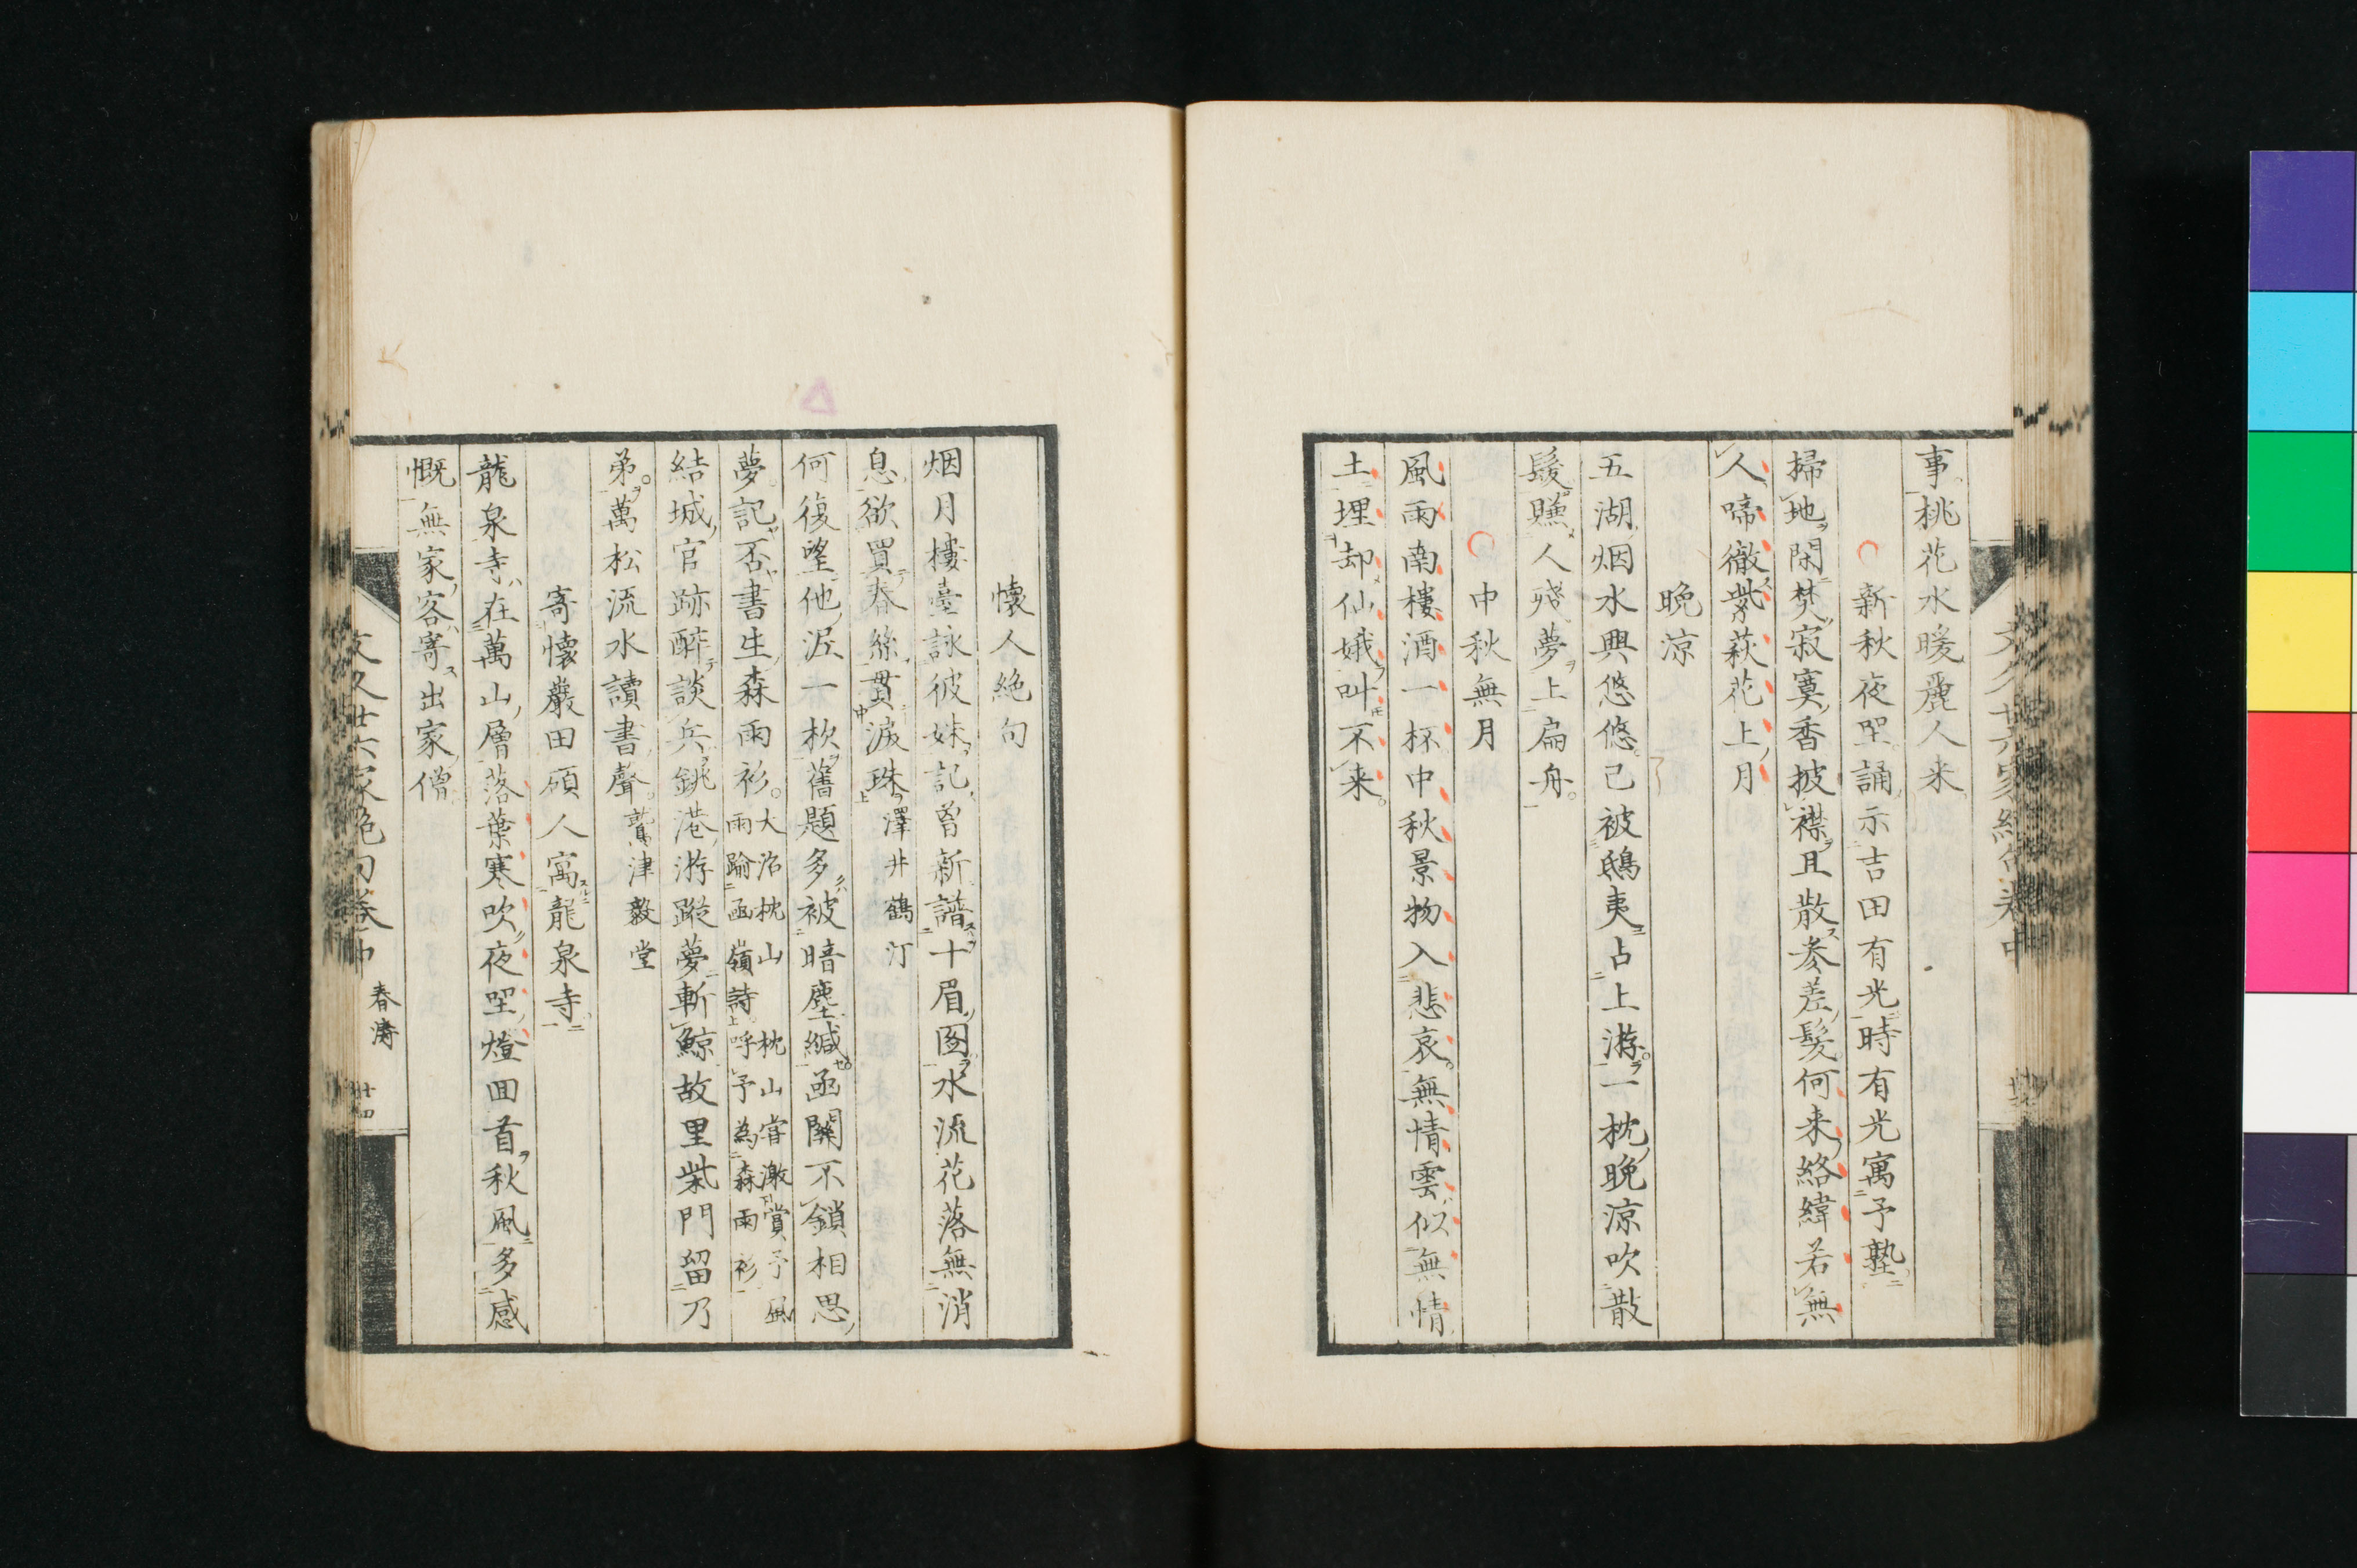 事桃花水暖麗人来
新秋夜坐誦示吉田有光時有光寓予塾
掃地閑焚寂寞香披襟且散參差髮何来絡緯若無
人啼徹紫萩花上月
晩涼
五湖烟水興悠悠已被鴟夷占上游一枕晩涼吹散
髮賺人殘夢上扁舟
中秋無月
風雨南樓酒一杯中秋景物入悲哀無情雲似無情
土埋却仙娥叫不来
懷人絶句
烟月樓臺詠彼姝記曾新譜十眉圖水流花落無消
息欲買春絲貫淚珠 澤井鶴汀
何復望他泥一杴舊題多被暗塵緘函關不鎖相思
夢記否書生森雨衫 大沼枕山 枕山嘗激賞予風
雨踰函嶺詩呼予為森雨衫
結城官跡醉談兵銚港游蹤夢斬鯨故里柴門留乃
弟萬松流水讀書聲 鷲津毅堂
寄懷巖田碩人寓龍泉寺
龍泉寺在萬山層落葉寒吹夜坐燈囬首秋風多感
慨無家客寄出家僧
文久廿六家絶句卷中 春濤 廿四